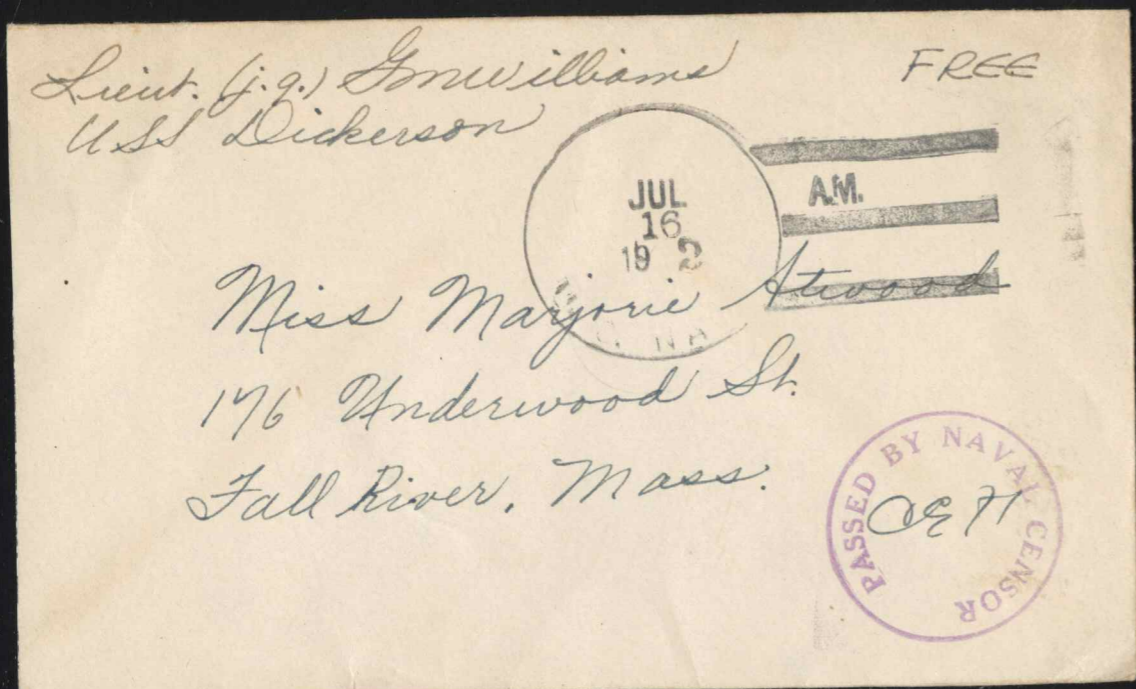 Lieut. (j.g.) GMWilliams
FREE
USS Dickerson
JUL
16
19 2
A.M.
Miss Marjorie Atwood
176 Underwood St.
Fall River, Mass.
PASSED BY NAVAL CENSOR
OEH